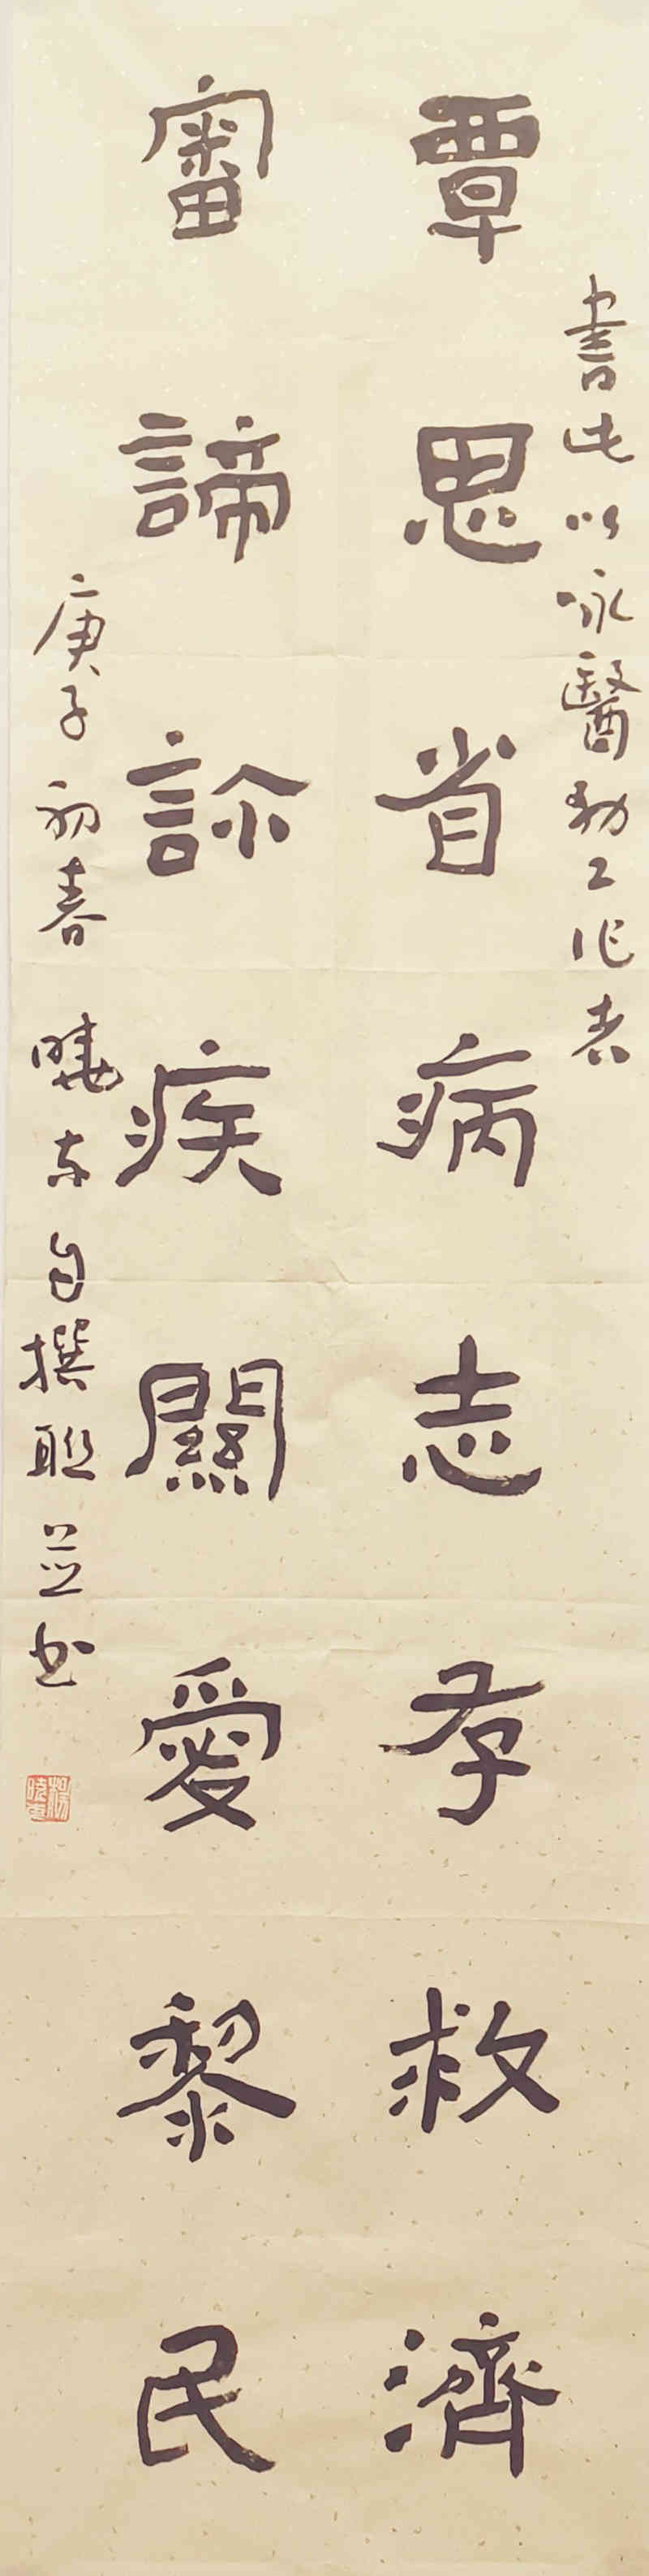 書此以咏醫務工作者
覃思省病志存救濟
審諦診疾關愛黎民
庚子初春 曉東自撰聯並书